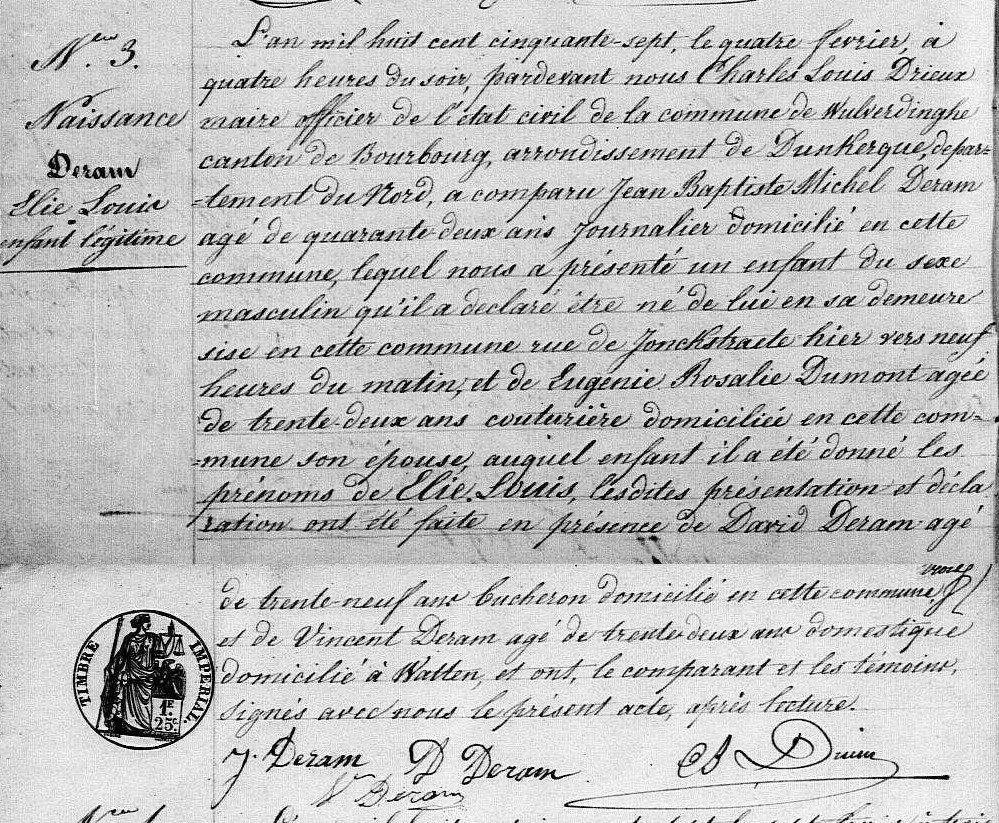 N.ero 3.
Naissance
Deram
Elie Louis
enfant légitime
L'an mil huit cent cinquante-sept, le quatre fevrier, à
quatre heures du soir, pardevant nous Charles Louis Drieux
maire officier de l'état civil de la commune de Wulverdinghe
canton de Bourbourg, arrondissement de Dunkerque, depar=
=tement du Nord, a comparu Jean Baptiste Michel Deram
agé de quarante-deux ans Journalier domicilié en cette
commune, lequel nous a présenté un enfant du sexe
masculin qu'il a declaré être né de lui en sa demeure
sise en cette commune rue de Jonckstraete hier vers neuf
heures du matin, et de Eugenie Rosalie Dumont agée
de trente-deux ans couturière domiciliée en cette com=
=mune son épouse, auquel enfant il a été donné les
prénoms de Elie Louis, lesdites présentation et décla
ration ont été faite en présence de David Deram agé
de trente-neuf ans bucheron domicilié en cette commune
et de Vincent Deram agé de trente-deux ans domestique
domicilié à Watten, et ont, le comparant et les témoins,
signés avec nous le présent acte, après lecture.
TIMBRE IMPERIAL.
1F.
25C.
J. Deram D Deram
V Deram